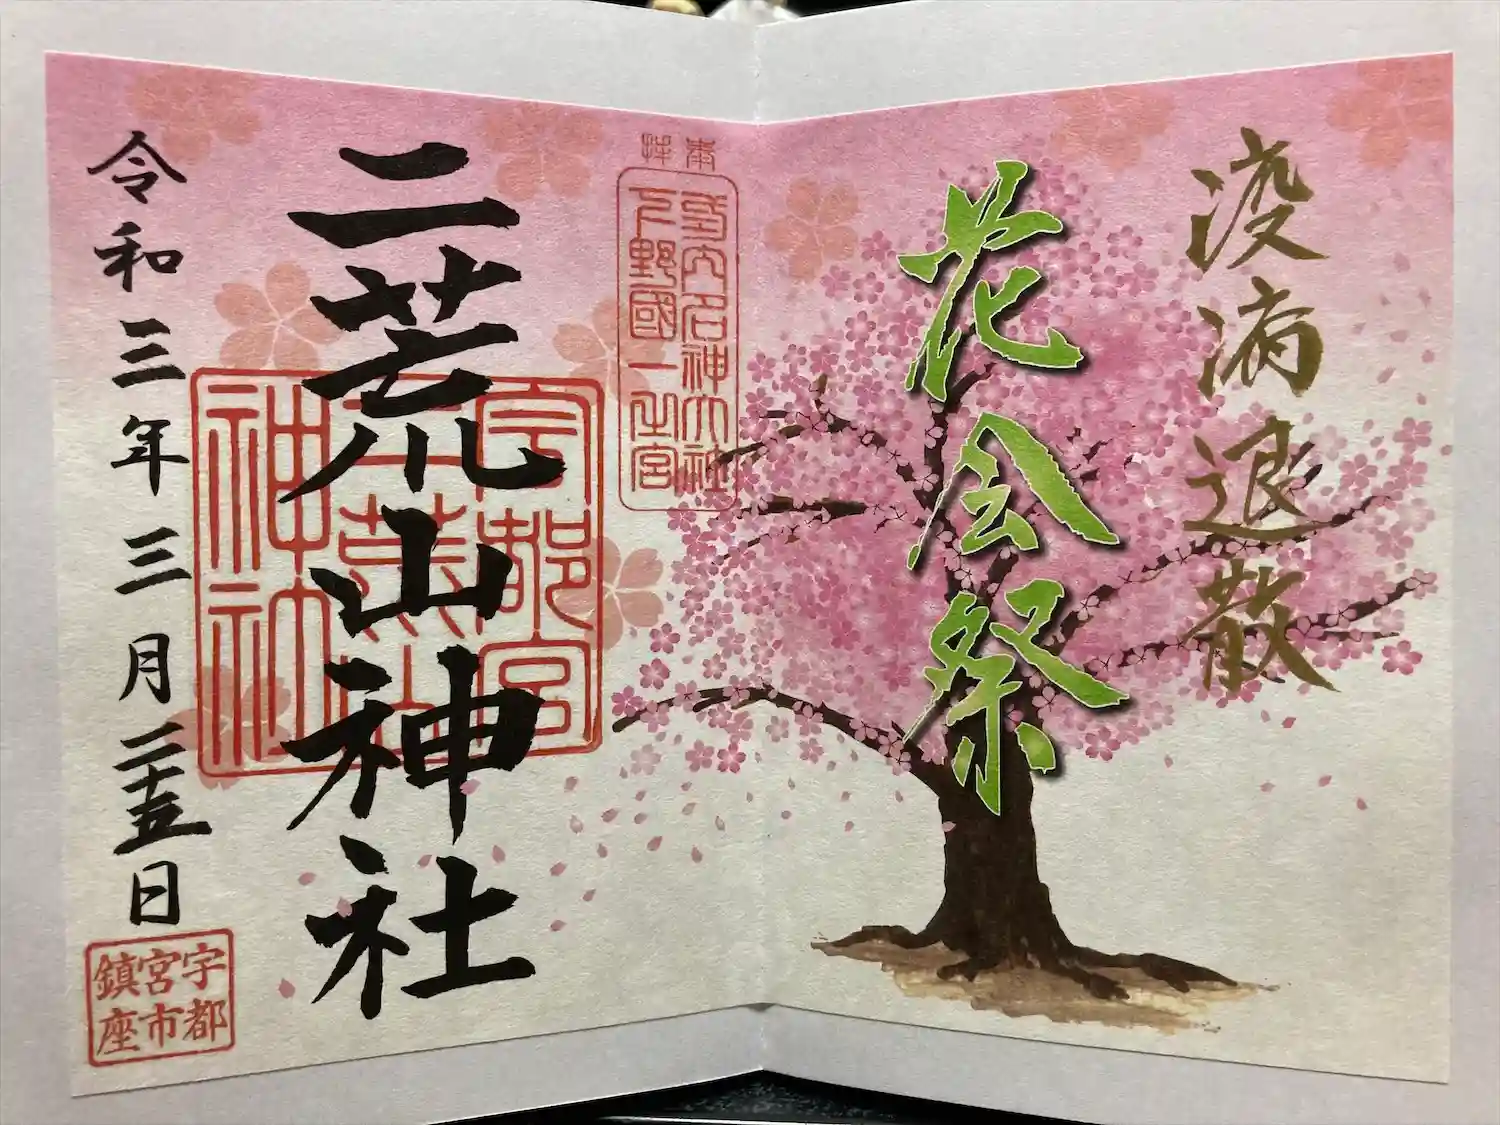 疫病退散
花会祭
奉拝
式内名神大社
下野國一之宮
宇都宮
二荒山
神社
二荒山神社
令和三年三月二十五日
宇都
宮市
鎮座